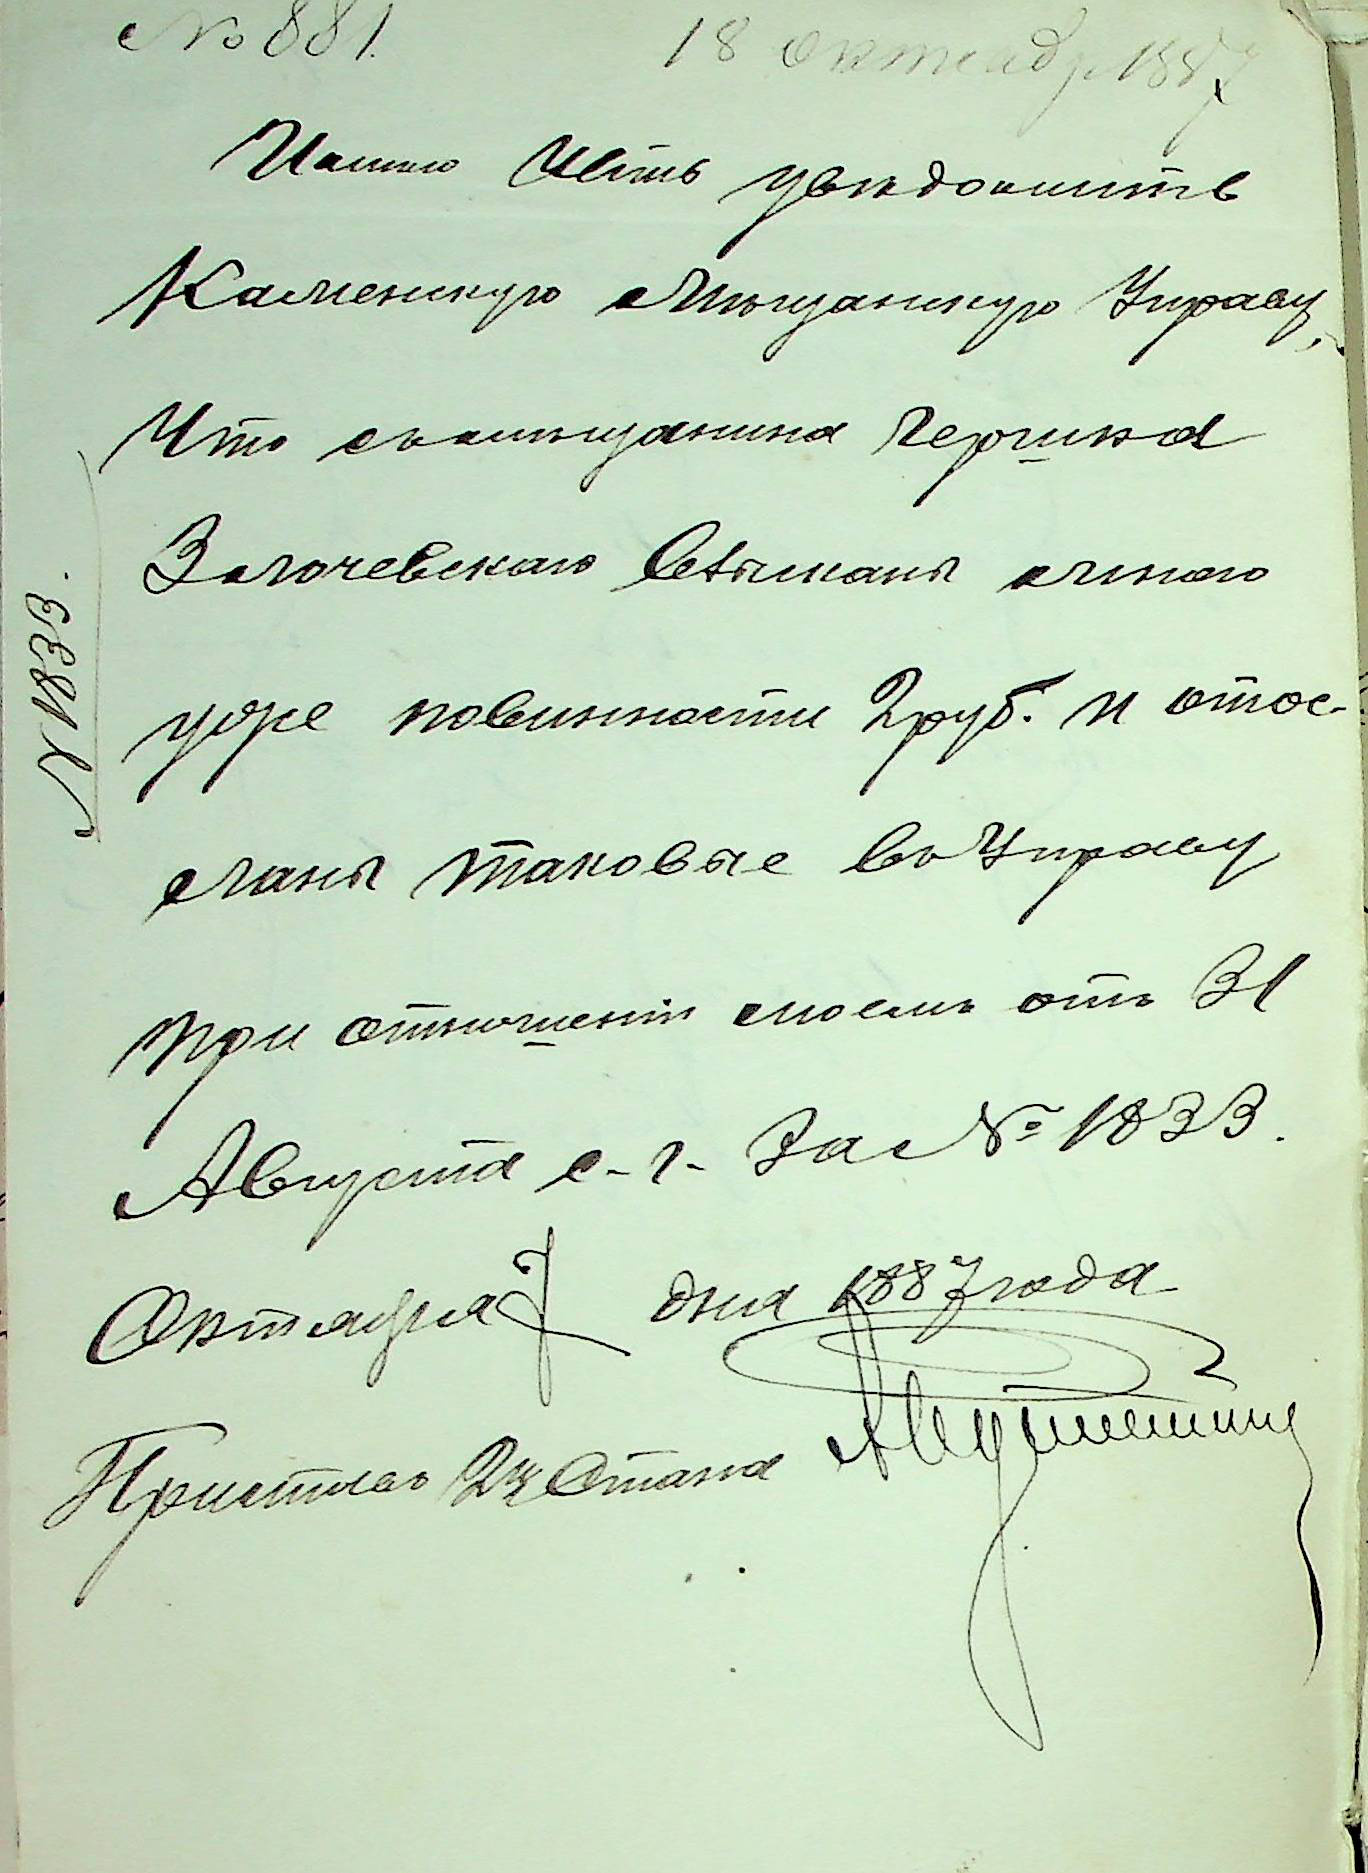 № 881.
18 октября 1887
Имѣю честь увѣдомить
Каменскую Мѣщанскую Управу,
Что съ мѣщанина Гершка
Золочевскаго взысканы мною
уже повинности 2 руб. и отос-
ланы таковые въ Управу
при отношеніи моемъ отъ 31
Августа с. г. за № 1833.
Октября 7 дня 1887 года
Приставъ 2го Стана